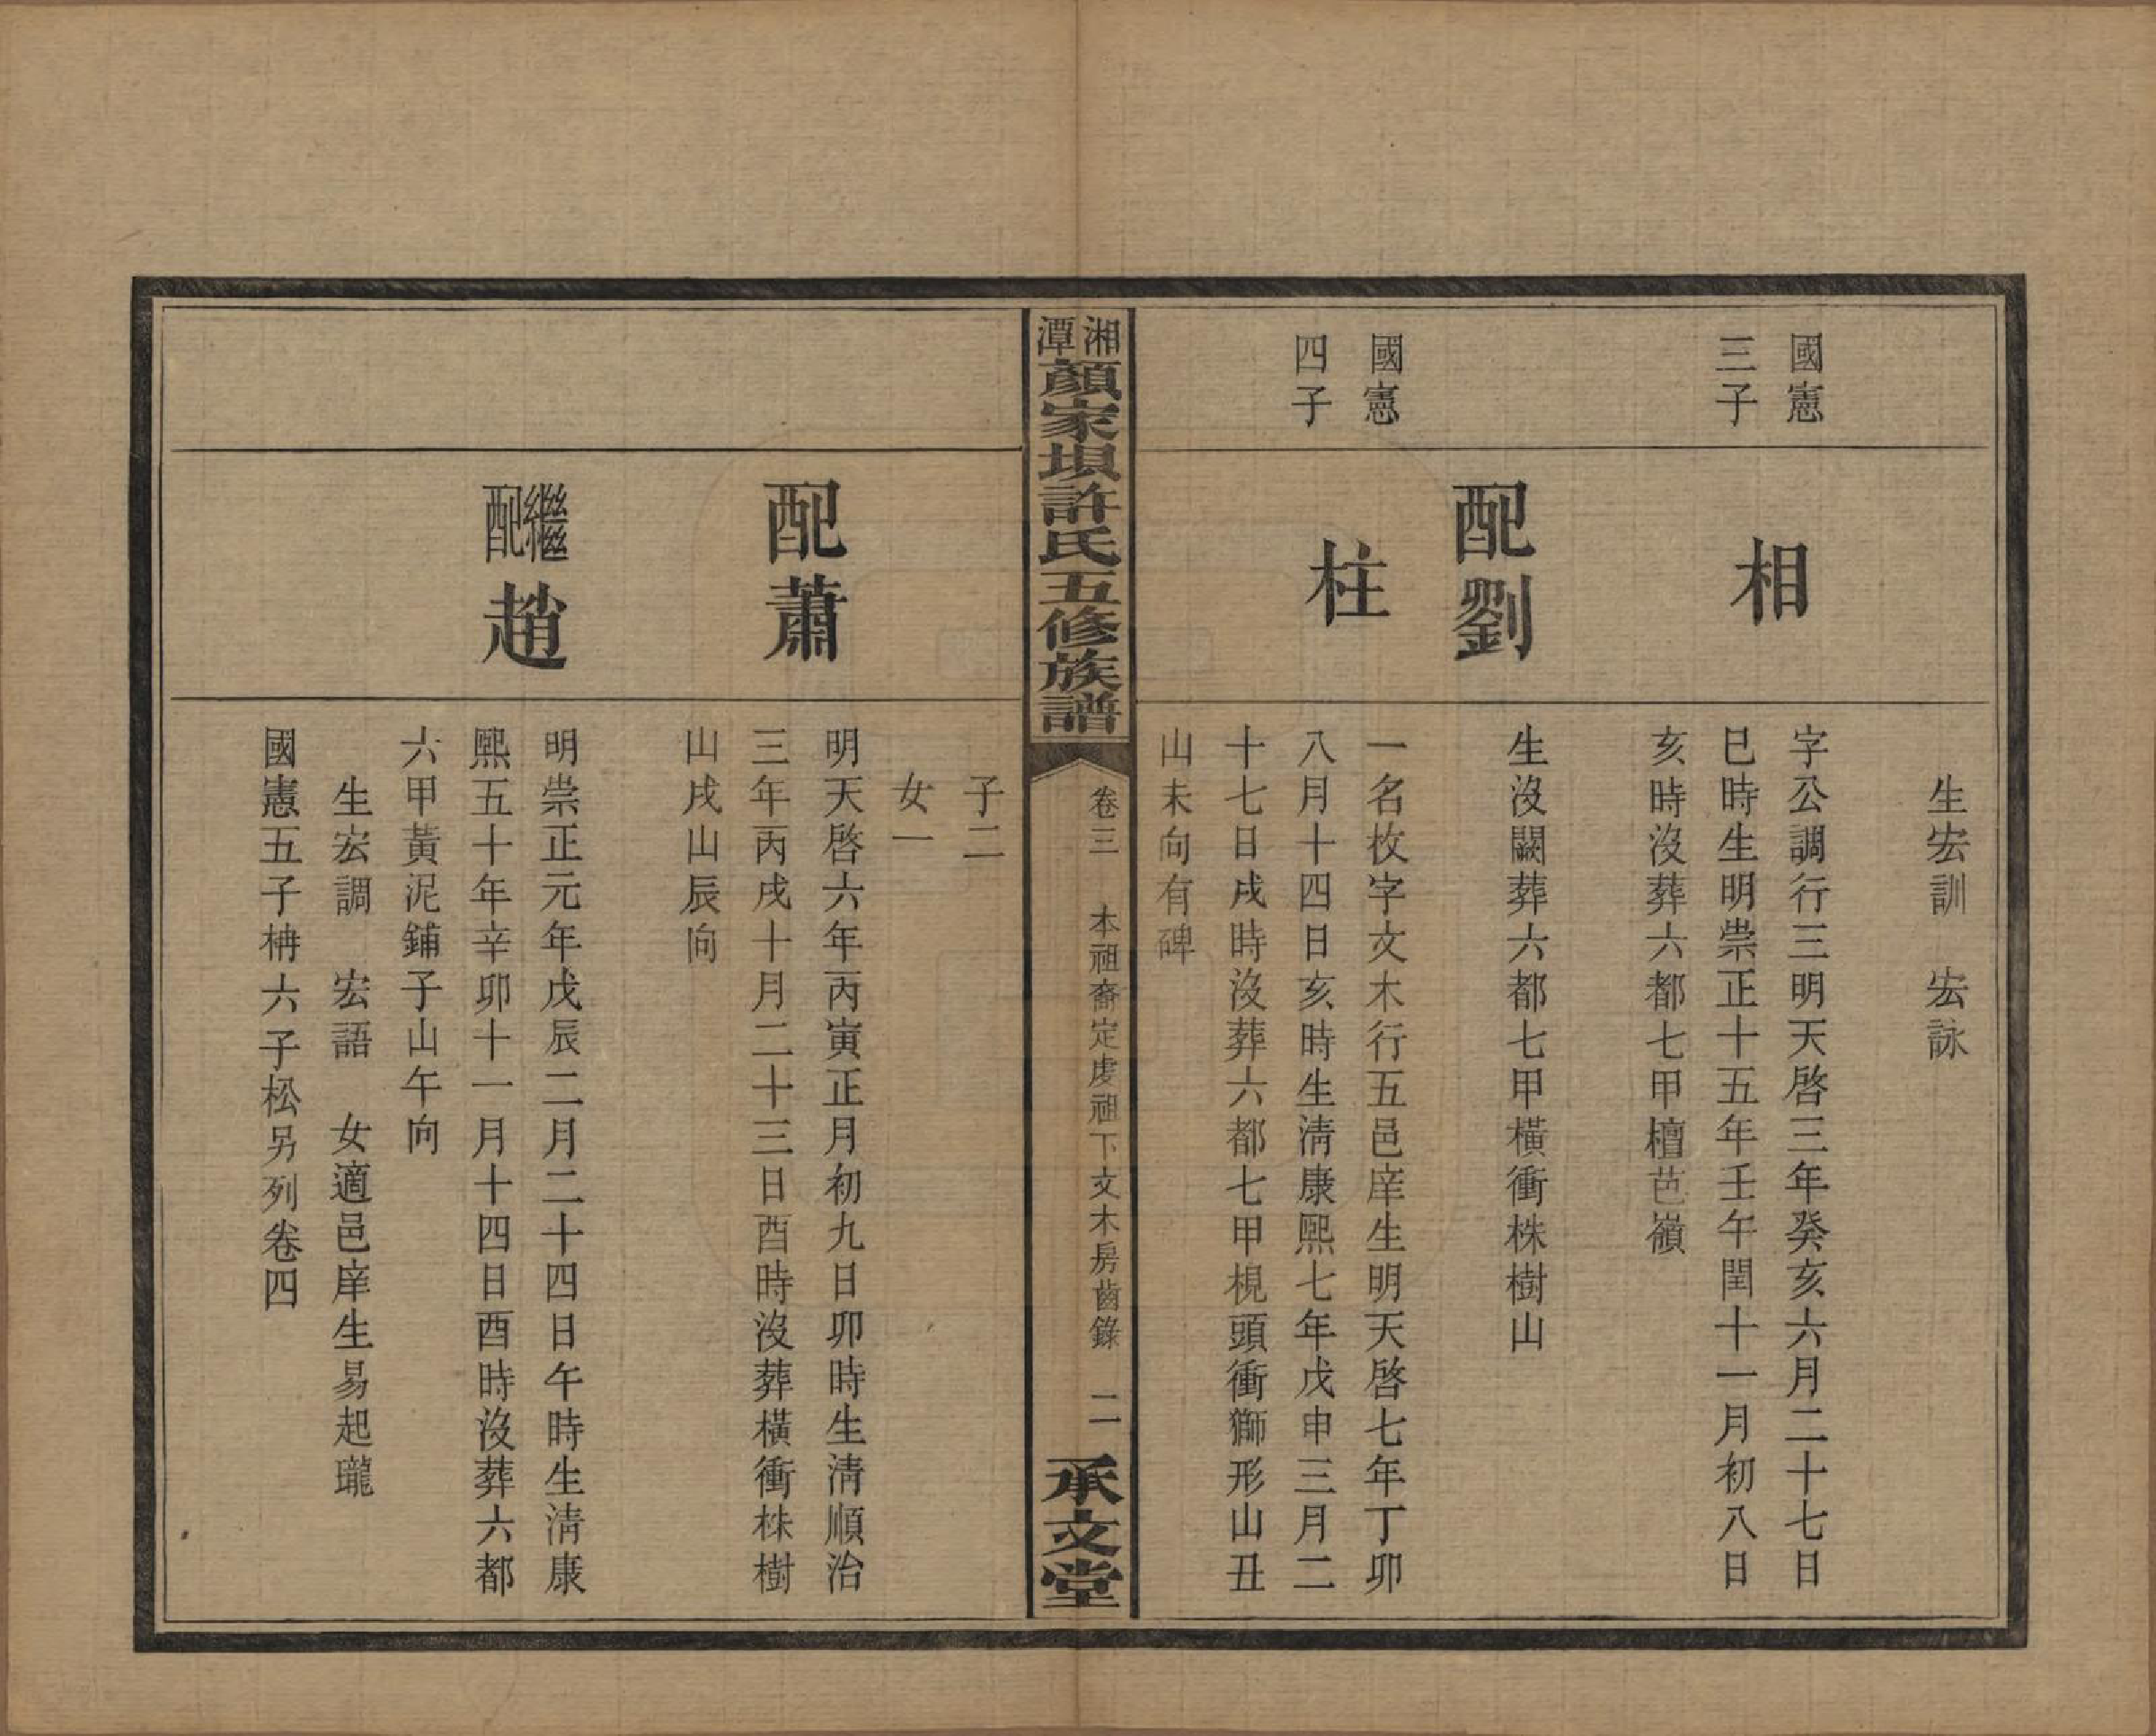 生宏訓　宏詠
國憲
三子
相
字公調行三明天啓三年癸亥六月二十七日
巳時生明崇正十五年壬午閏十一月初八日
亥時沒葬六都七甲檀芭嶺
配劉
生沒闕葬六都七甲橫衝株樹山
國憲
四子
柱
一名枚字文木行五邑庠生明天啓七年丁卯
八月十四日亥時生清康熙七年戊申三月二
十七日戌時沒葬六都七甲梘頭衝獅形山丑
山未向有碑
湘潭顏家垻許氏五修族譜
卷三　本祖裔定虔祖下文木房齒錄　二
承文堂
子二
女一
配蕭
明天啓六年丙寅正月初九日卯時生清順治
三年丙戌十月二十三日酉時沒葬橫衝株樹
山戌山辰向
繼配趙
明崇正元年戊辰二月二十四日午時生清康
熙五十年辛卯十一月十四日酉時沒葬六都
六甲黃泥鋪子山午向
生宏調　宏語　女適邑庠生易起瓏
國憲五子柟六子松另列卷四